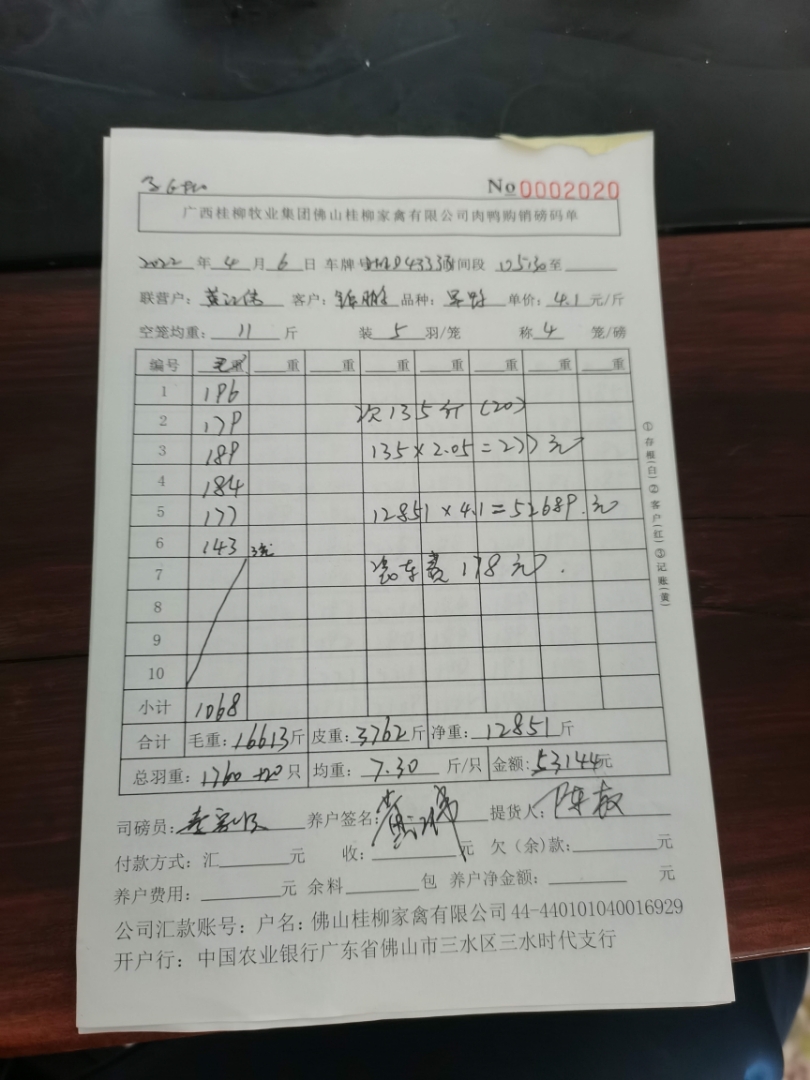 No 0002020
广西桂柳牧业集团佛山桂柳家禽有限公司肉鸭购销磅码单
2022 年 4 月 6 日 车牌 时间段 至
联营户： 客户： 品种： 单价：4.1 元/斤
空笼均重：11 斤 装 5 羽/笼 称 4 笼/磅
编号 毛重 重 重 重 重 重 重 重
1 196
2 179 次135斤(20)
3 189 135×2.05=277元
4 184
5 177 12851×4.1=52689.元
6 143 3笼
7 装车费178元.
8
9
10
小计 1068
合计 毛重：16613斤 皮重：3762斤 净重：12851斤
总羽重：1760+20只 均重：7.30 斤/只 金额：53144元
司磅员： 养户签名： 提货人：
付款方式：汇 元 收： 元 欠（余）款： 元
养户费用： 元 余料 包 养户净金额： 元
公司汇款账号：户名：佛山桂柳家禽有限公司 44-440101040016929
开户行：中国农业银行广东省佛山市三水区三水时代支行
①存根(白)②客户(红)③记账(黄)